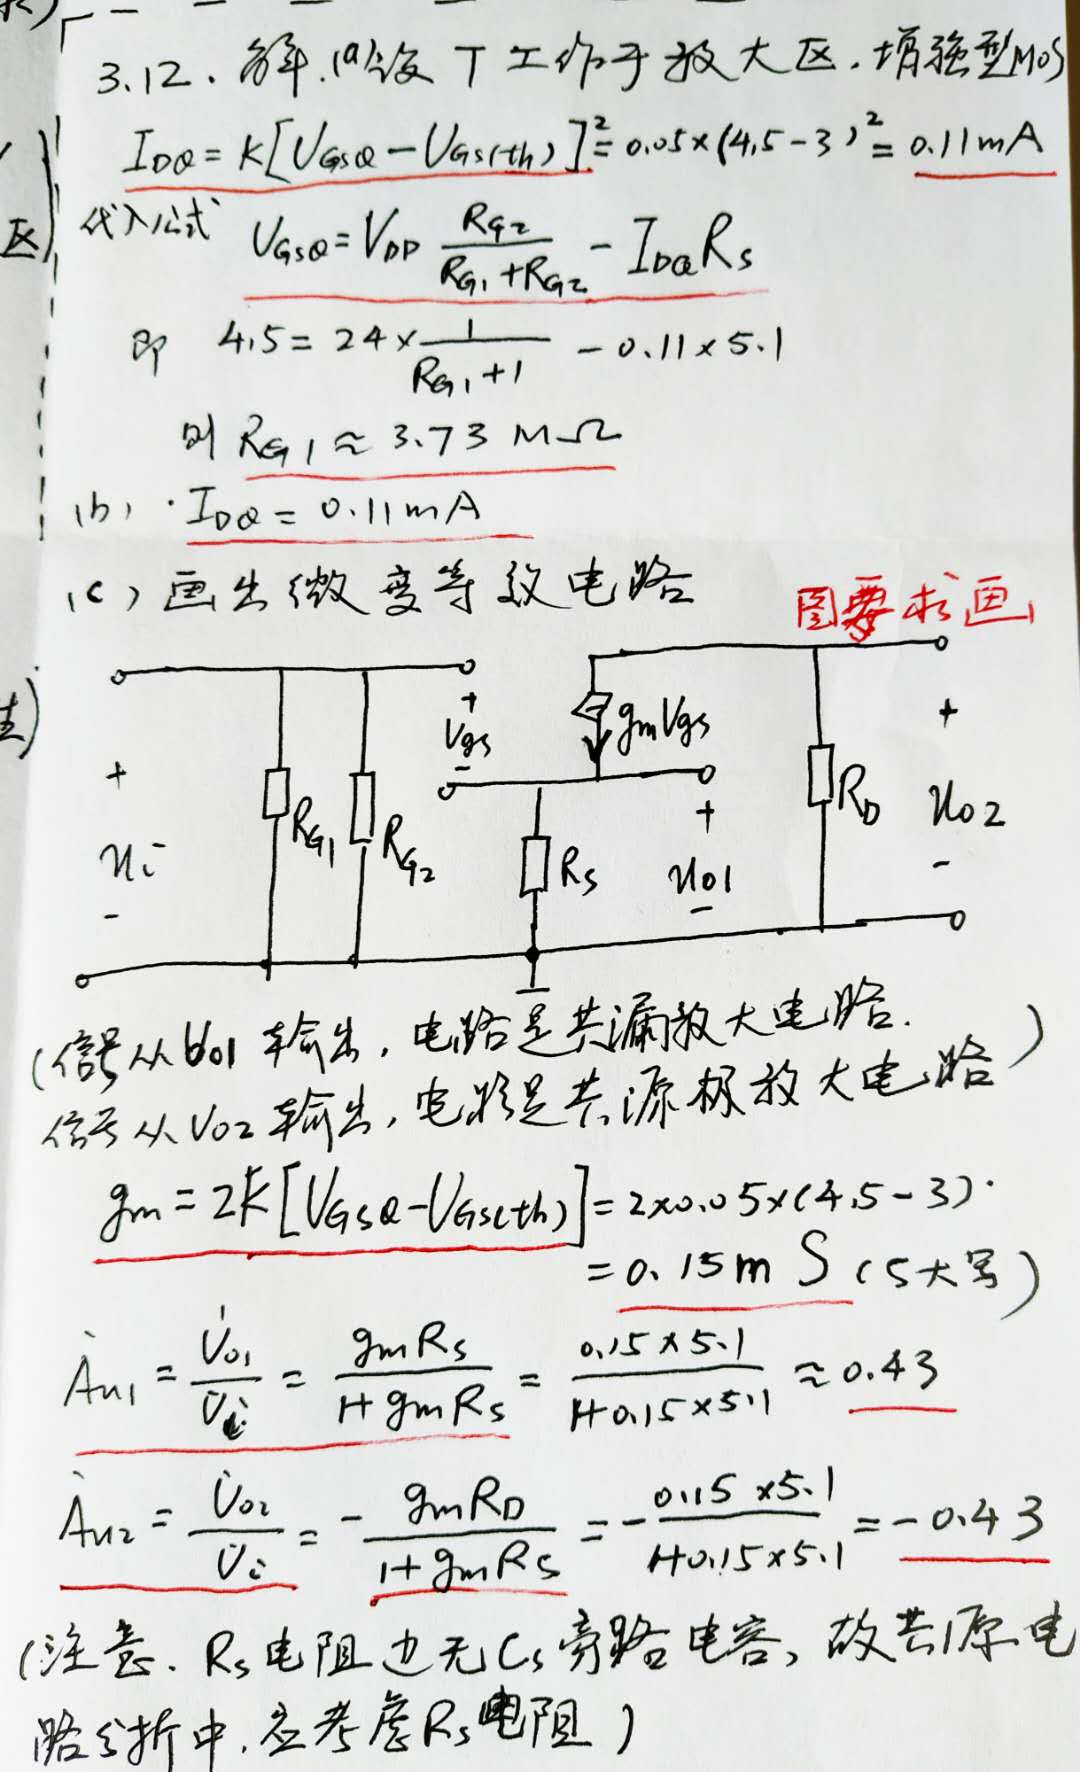 3.12. 解.(a)设 T 工作于放大区.增强型MOS
I_DQ = K[U_GSQ − U_GS(th)]² = 0.05×(4.5−3)² = 0.11mA
区)
代入公式 U_GSQ = V_DD R_G2/(R_G1+R_G2) − I_DQ R_S
即 4.5 = 24 × 1/(R_G1+1) − 0.11×5.1
则 R_G1 ≈ 3.73 MΩ
(b) · I_DQ = 0.11mA
(c) 画出微变等效电路
图要求画
+ + +
V_gs g_mV_gs
− +
u_i R_G1 R_G2 R_S u_01 R_D u_02
− − −
(信号从U_01 输出, 电路是共漏放大电路.
信号从U_02 输出, 电路是共源极放大电路)
g_m = 2K[U_GSQ − U_GS(th)] = 2×0.05×(4.5−3)·
= 0.15m S (S大写)
Ȧ_u1 = U̇_01/U̇_i = g_mR_S/(1+g_mR_S) = 0.15×5.1/(1+0.15×5.1) ≈ 0.43
Ȧ_u2 = U̇_02/U̇_i = − g_mR_D/(1+g_mR_S) = − 0.15×5.1/(1+0.15×5.1) = −0.43
(注意. R_S电阻边无C_S旁路电容, 故共源电
路分析中.应考虑R_S电阻)